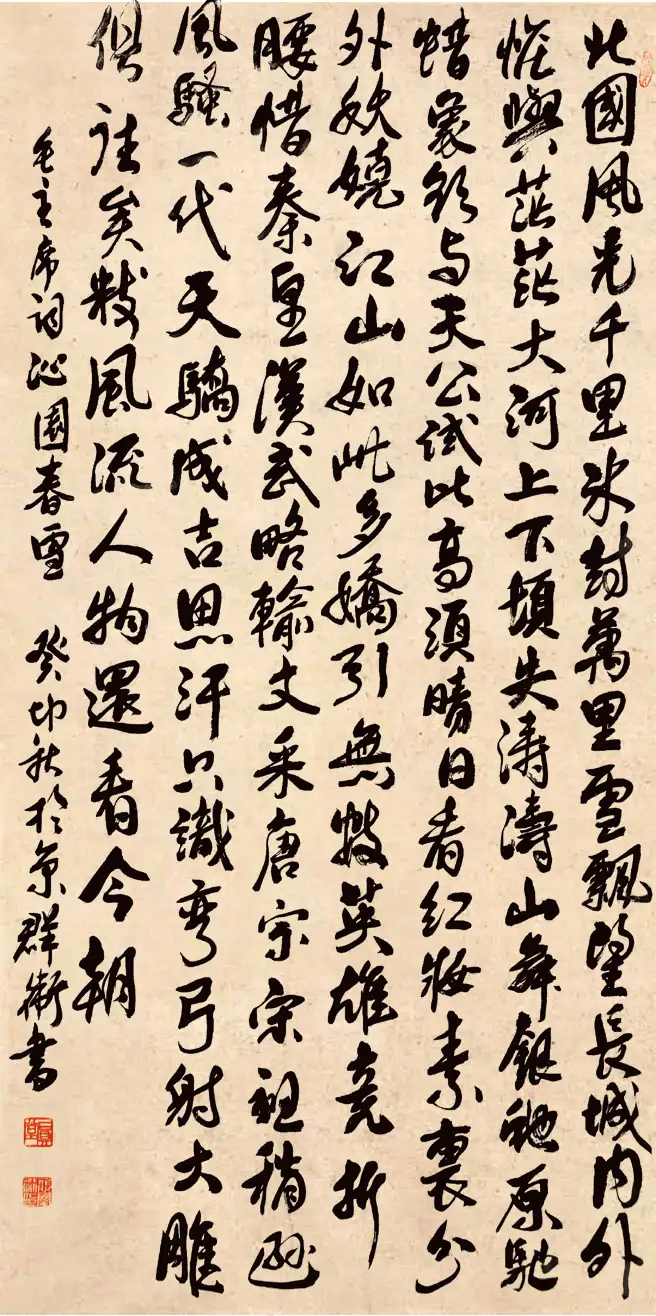 北國風光千里冰封萬里雪飄望長城内外
惟與茫茫大河上下頓失涛濤山舞銀虵原馳
蜡象欲与天公試比高須晴日看红妝素裹分
外妖嬈江山如此多嬌引無數英雄竞折
腰惜秦皇漢武略輸文采唐宗宋祖稍遜
風騷一代天驕成吉思汗只識弯弓射大雕
俱往矣數風流人物還看今朝
毛主席词沁園春雪 癸卯秋於京群衛書